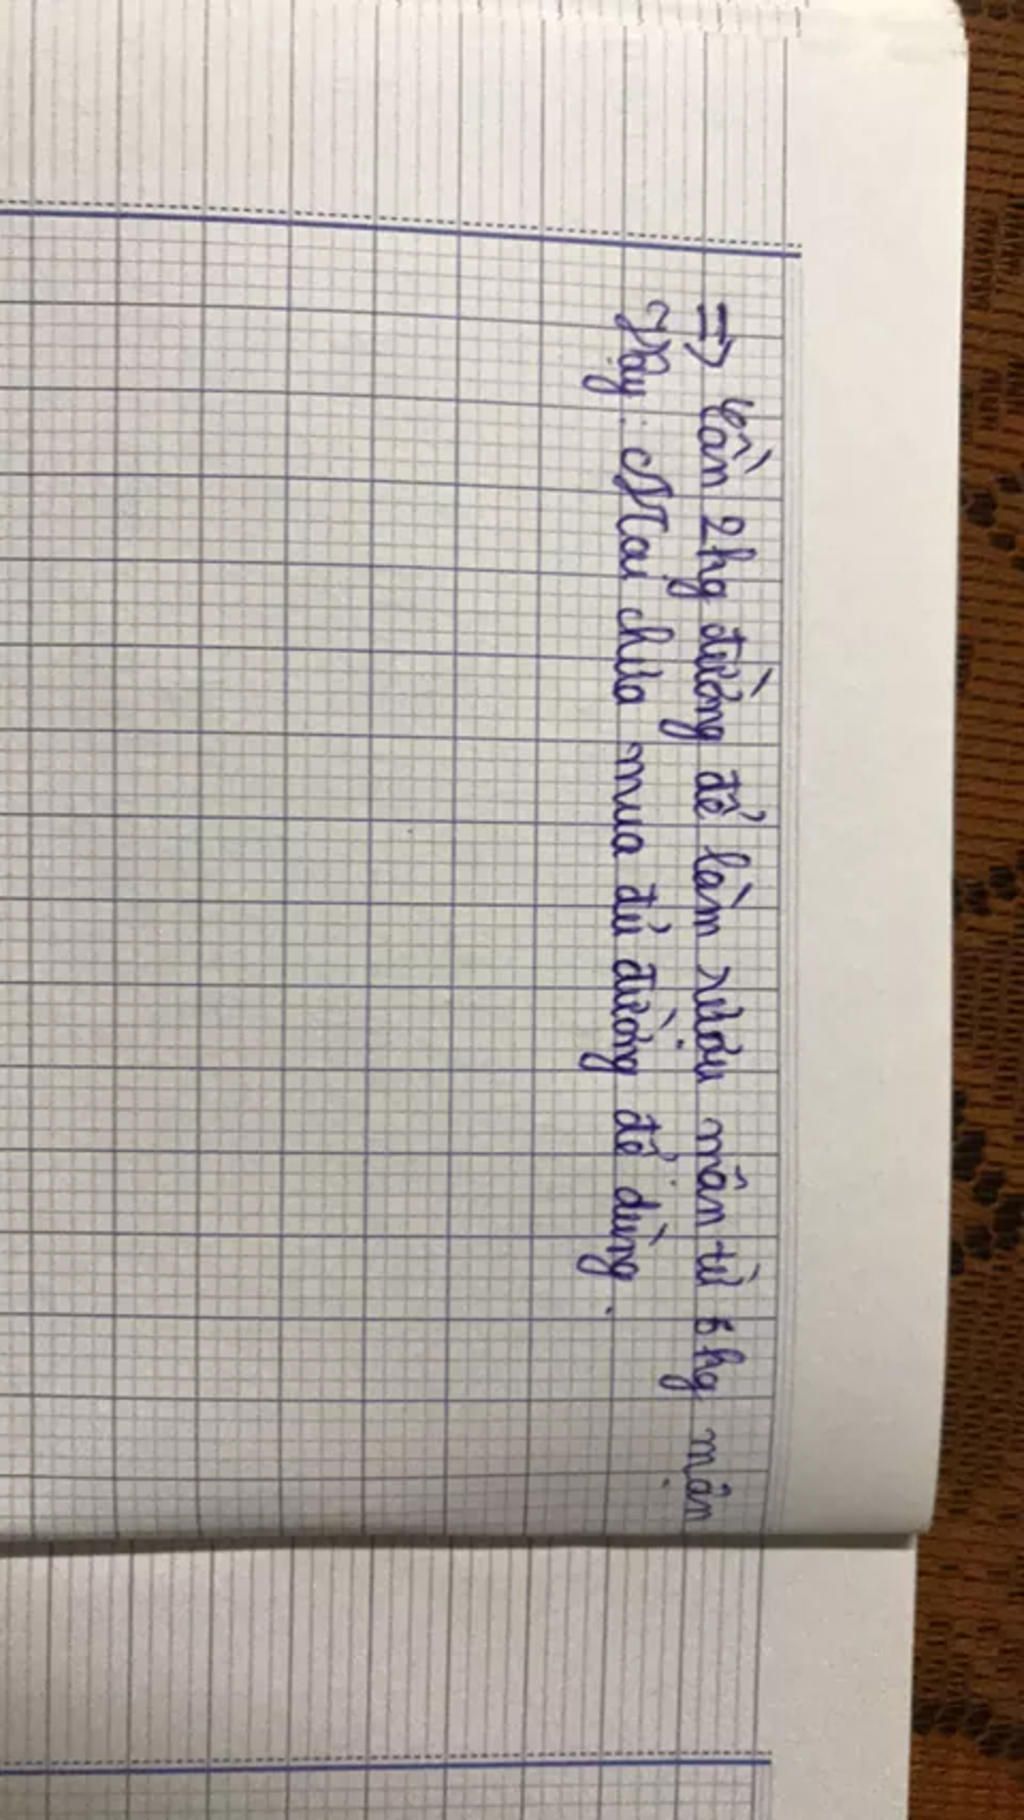 => Cần 2kg đường để làm rượu mân từ 6kg mận
Vậy: Mai chưa mua đủ đường để dùng.